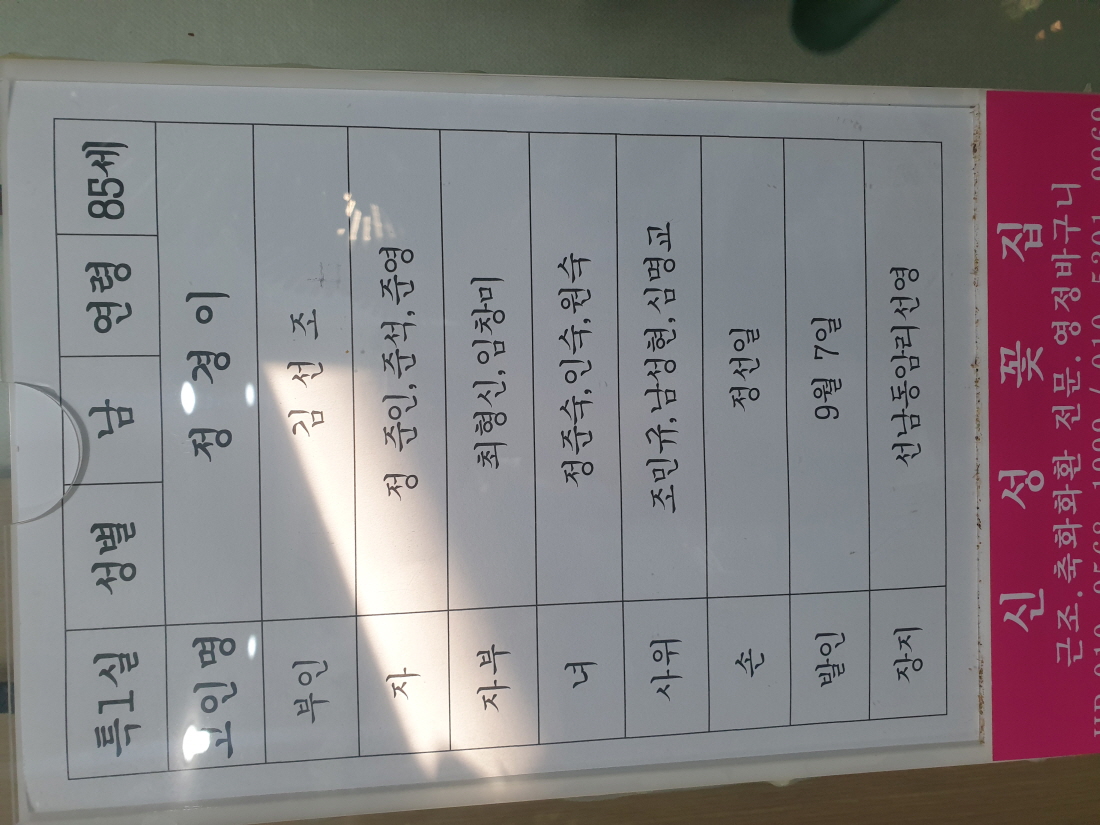 특1실 성별 남 연령 85세
고인명 정 경 이
부인 김 선 조
자 정 준인,준석,준영
자부 최형신,임창미
녀 정준숙,인숙,원숙
사위 조민규,남성현,심명교
손 정선일
발인 9월 7일
장지 선남동암리선영
신 성 꽃 집
근조.축화화환 전문.영정바구니